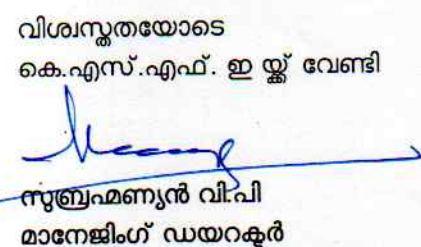 വിശ്വസ്തതയോടെ
കെ.എസ്.എഫ്. ഇ യ്ക്ക് വേണ്ടി
സുബ്രഹ്മണ്യൻ വി.പി
മാനേജിംഗ് ഡയറക്ടർ